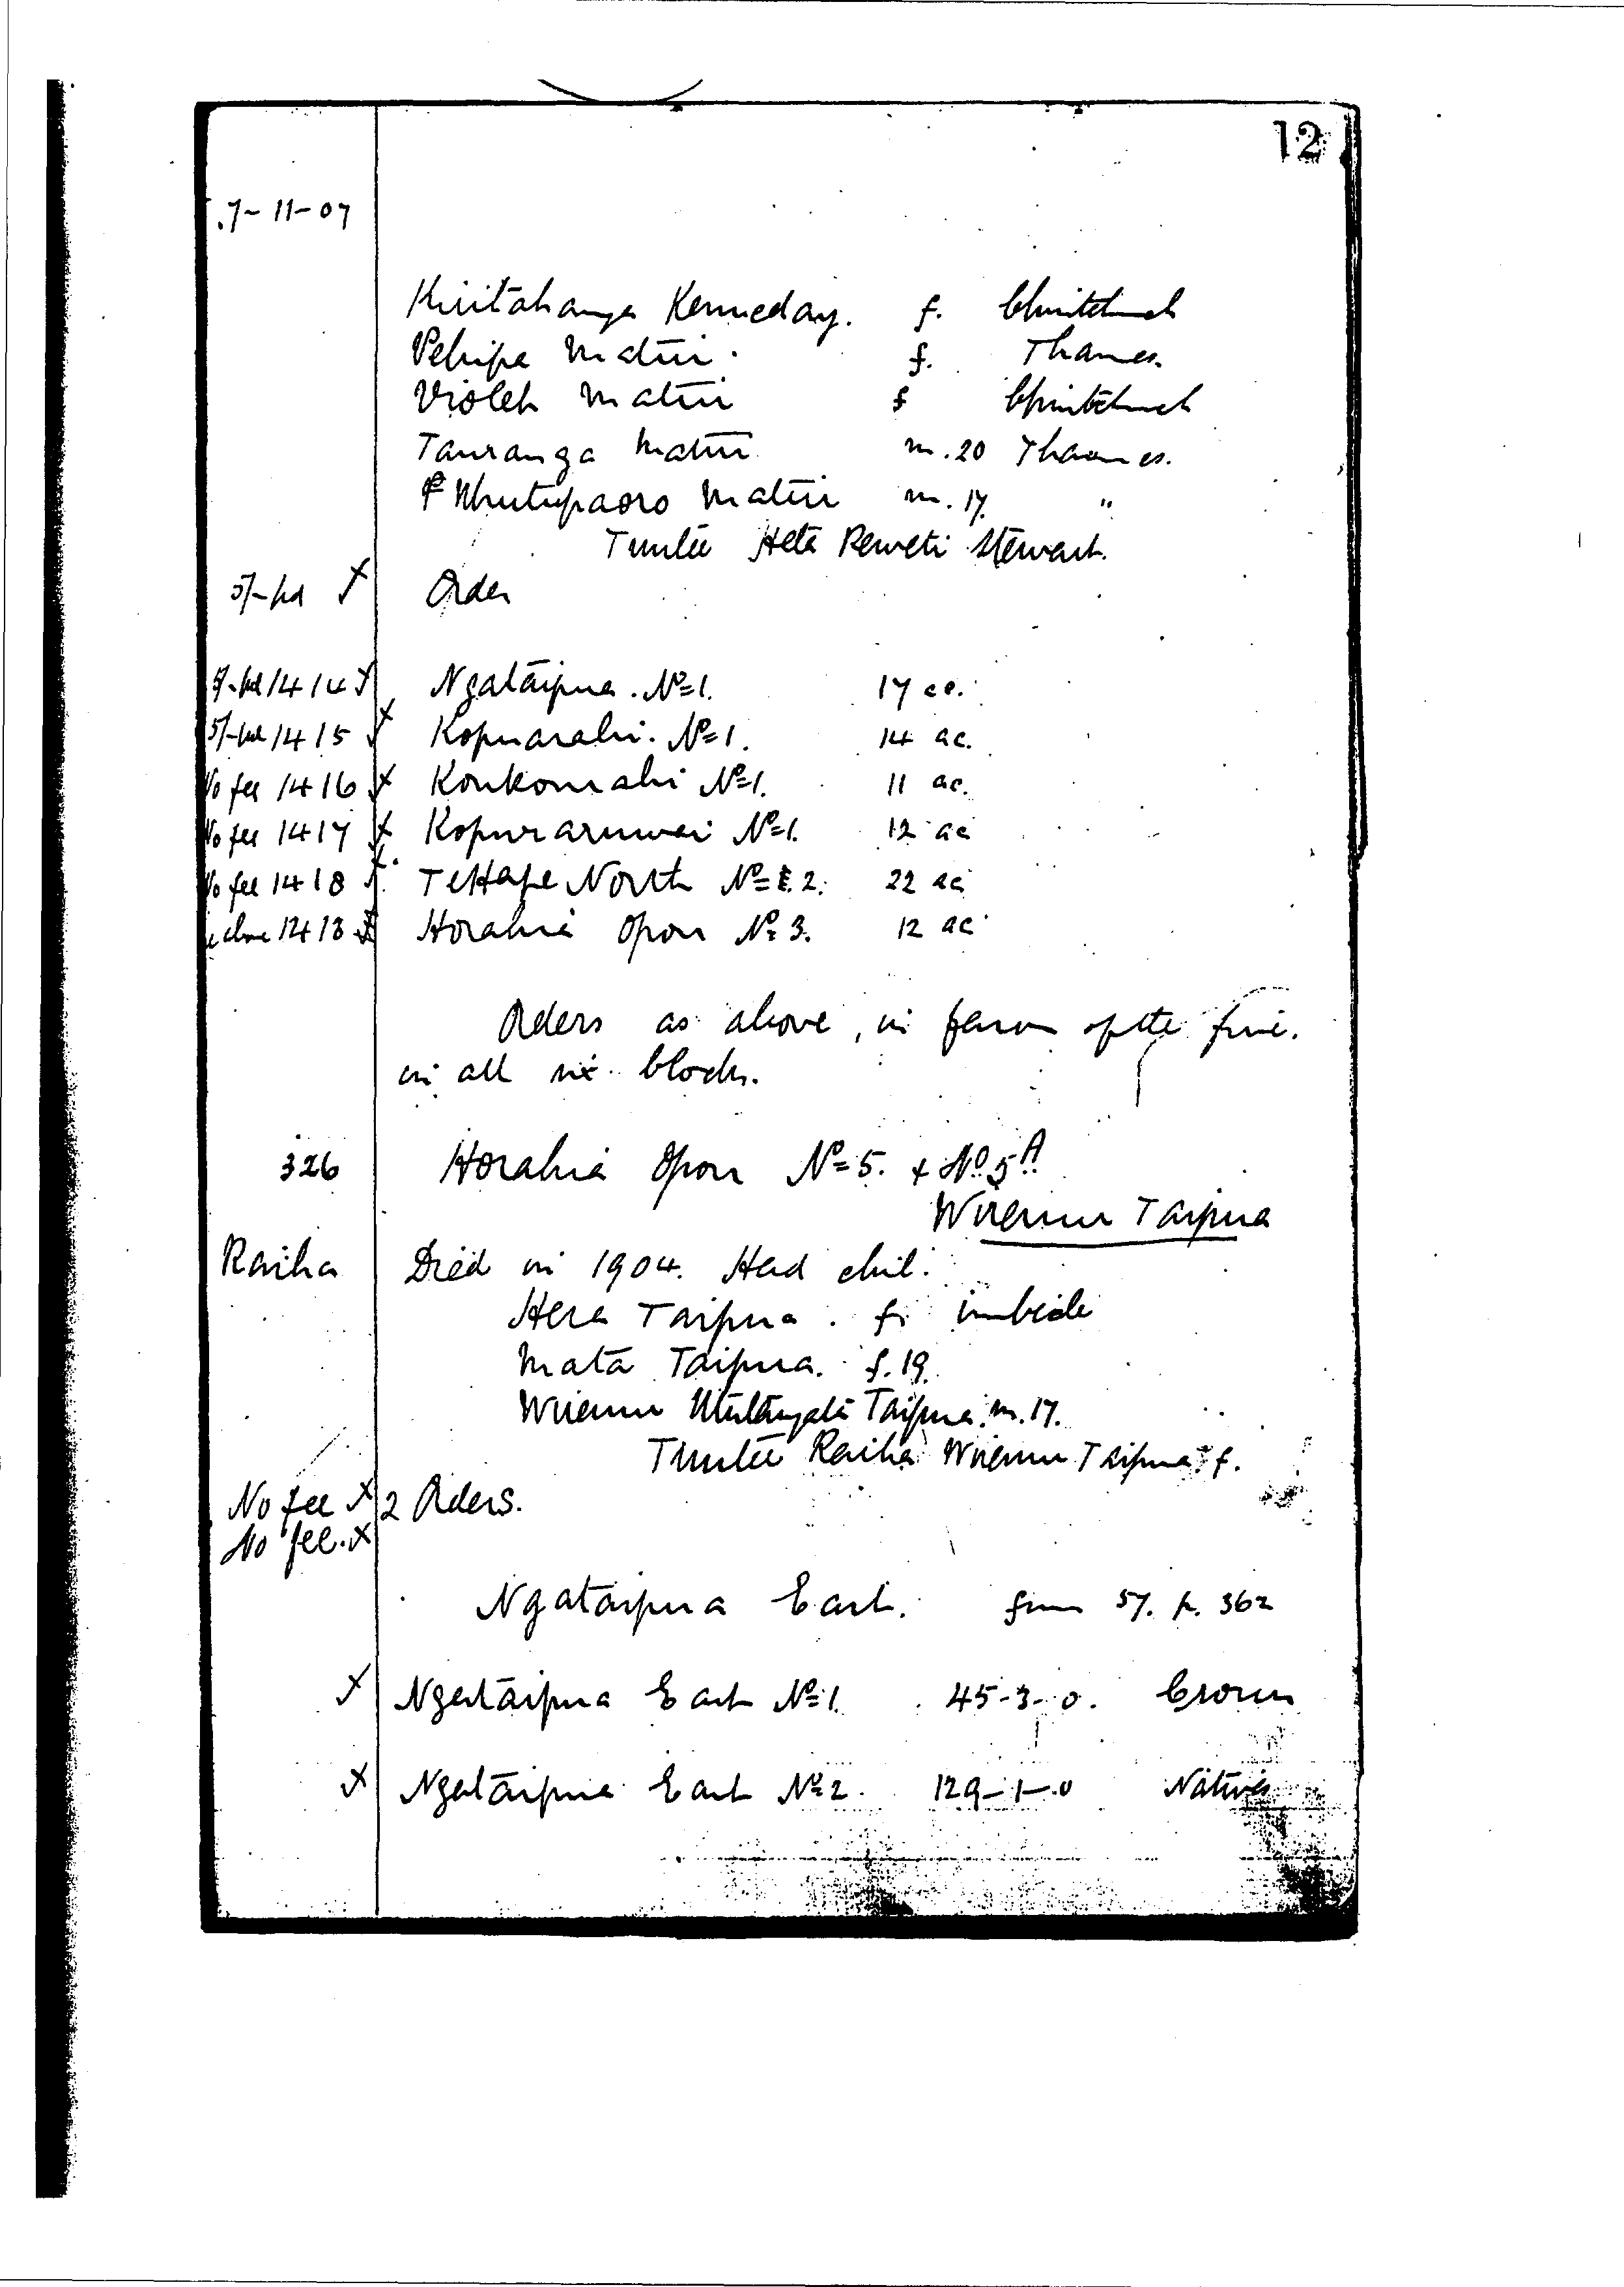 12
7-11-07
Kiritahanga Kenneday. f. Christchurch
Pehipa Matiu. f. Thames.
Violet Matiu f Christchurch
Tauranga Matiu m. 20 Thames.
Matiu m. 17. "
Trustee Heta Reweti Stewart.
5/- pd X Order
5/- pd 1414 X Ngataipua. No 1. 17 ac.
5/- pd 1415 X Kopuarahi. No 1. 14 ac.
No fee 1416 X Koukourahi No 1. 11 ac.
No fee 1417 X Kopuraruwai No 1. 12 ac
No fee 1418 X. Te Hape North No 2. 22 ac
1413 X Horahia Opou No 3. 12 ac
Orders as above, in favour of the five.
in all six blocks.
326 Horahia Opou No 5. + No 5A
Wiremu Taipua
Raiha Died in 1904. Had chil:
Hera Taipua. f.
Mata Taipua. f. 19.
Wiremu Taipua. m. 17.
Trustee Raiha Wiremu Taipua. f.
No fee X 2 Orders.
No fee. X
Ngataipua East. from 57. p. 362
X Ngataipua East No 1. 45-3-0. Crown
X Ngataipua East No 2. 129-1-0 Natives